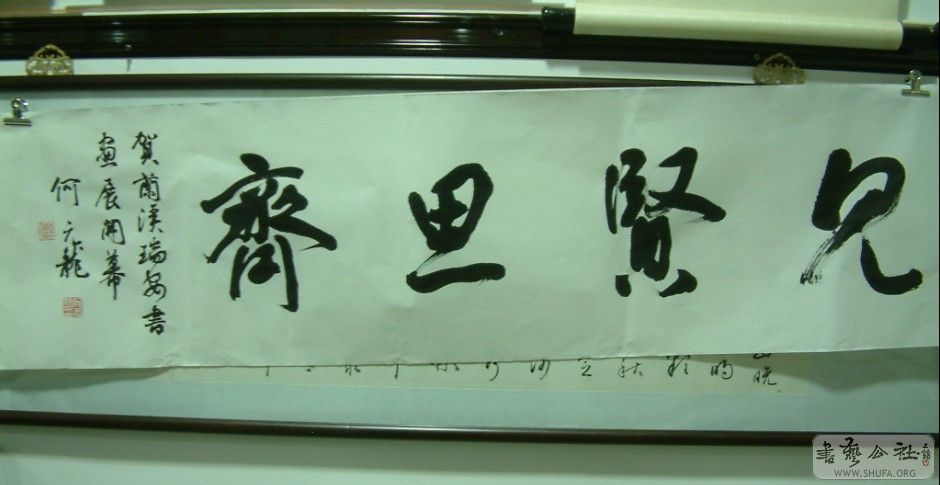 見賢思齊
賀蘭溪瑞安書
畫展開幕
何元龍
晚
書藝公社
WWW.SHUFA.ORG